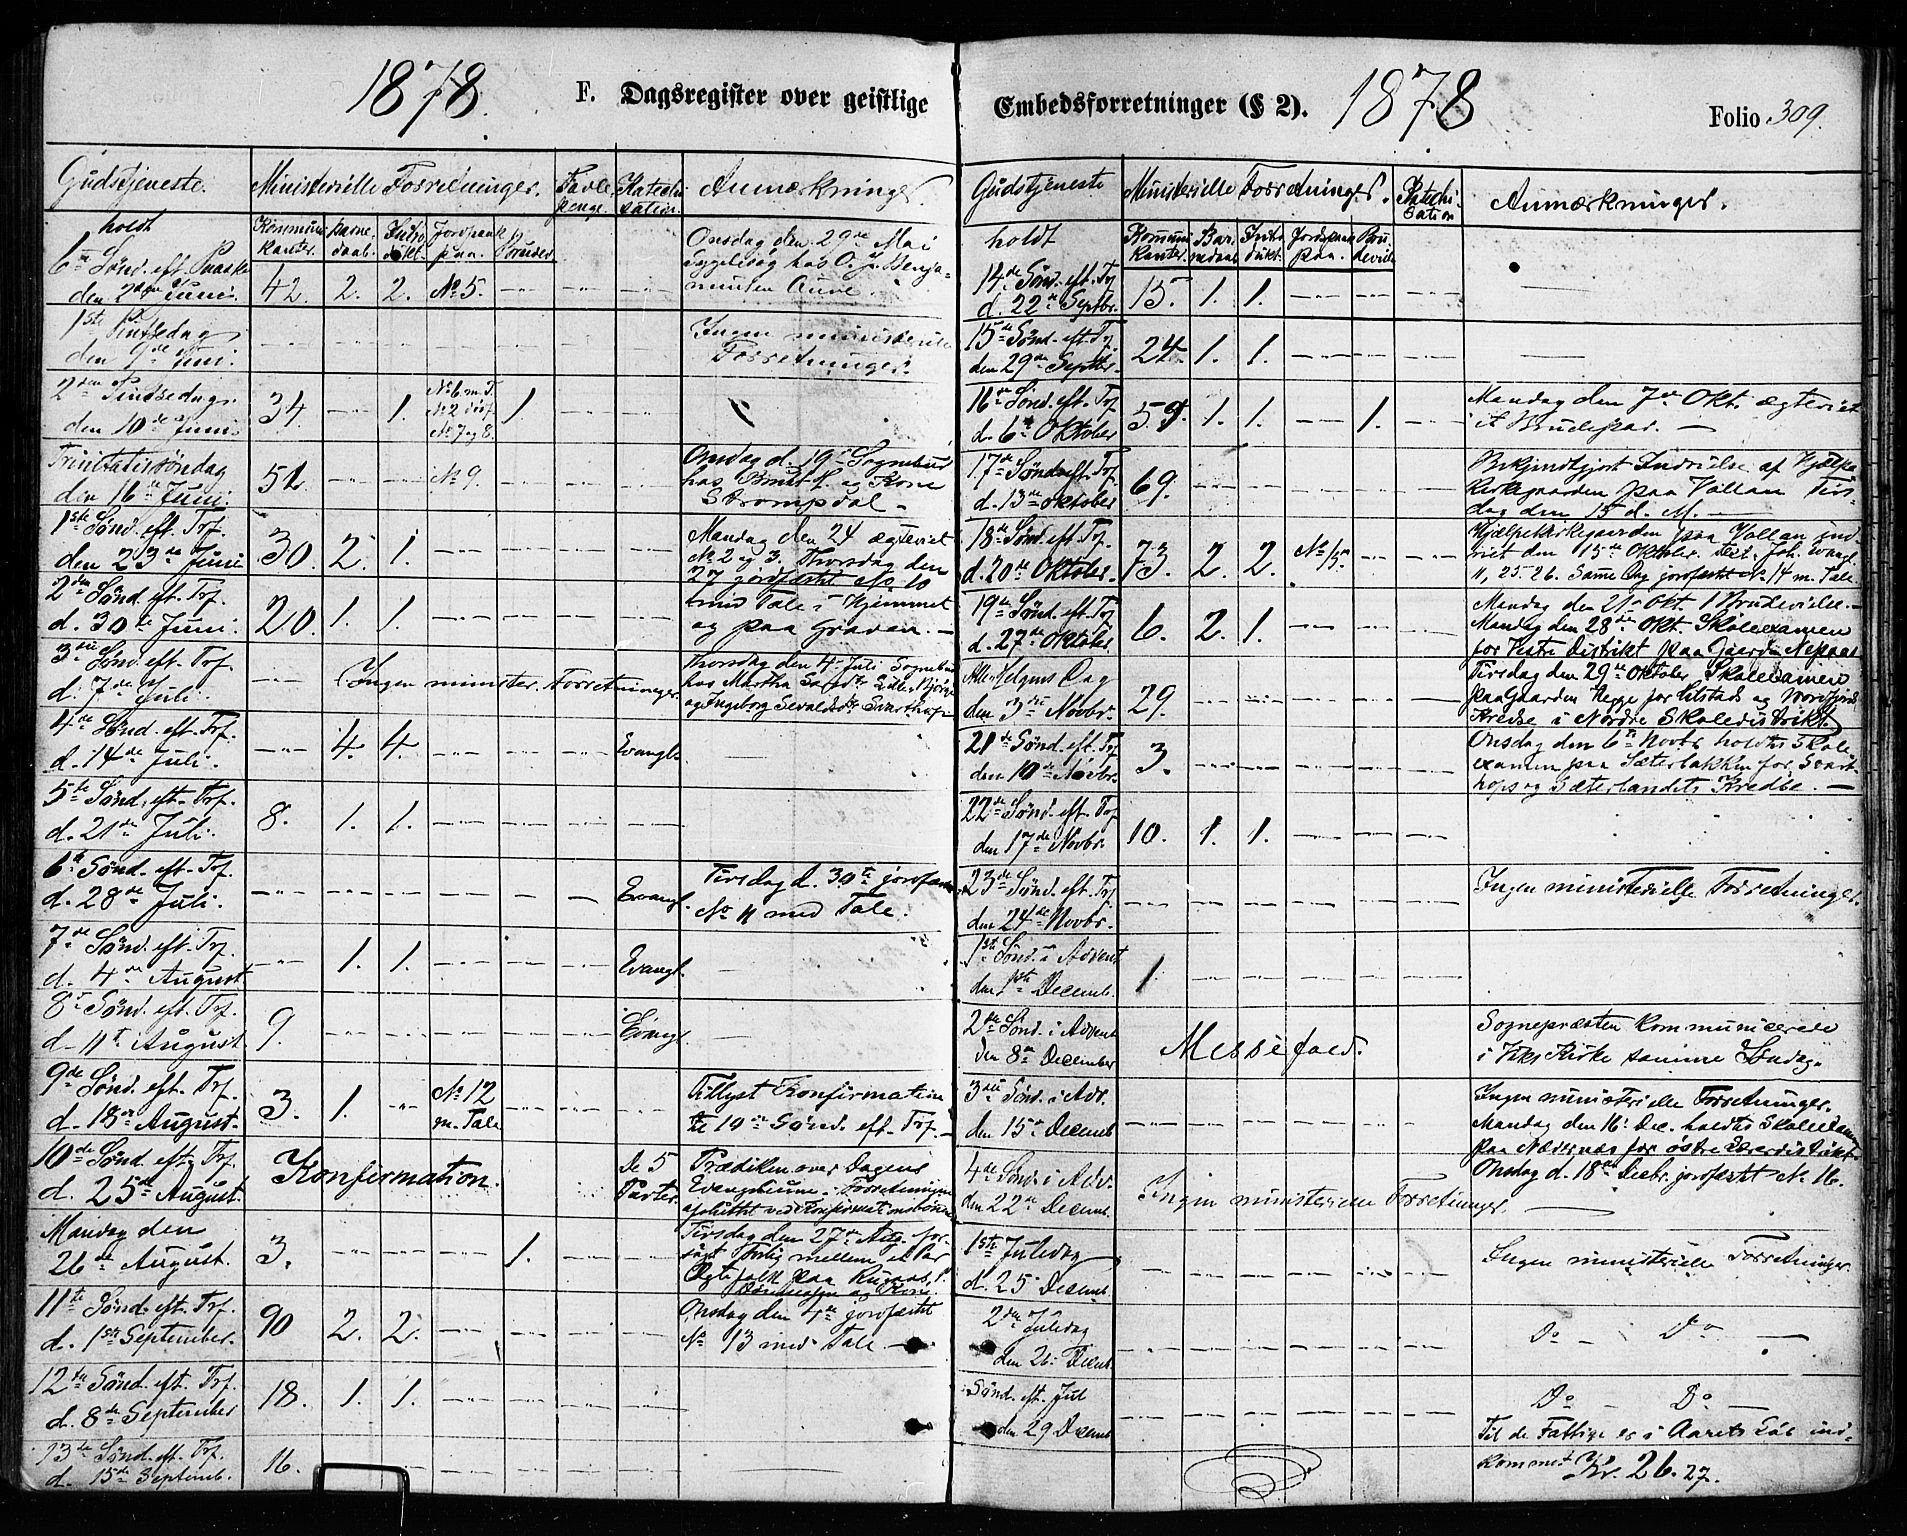 1878.
F. Dagsregister over geistlige
Gudstjeneste. Ministerielle Forretninger. Tavlepenge. Katechisation. Anmærkninger.
holdt
Kommunikanter. Barnedaab. Introdukt. Jordpaak. Brudevi.
6te Sønd. eft. Paaske
den 2den Juni. 42. 2. 2. No 5. Onsdag den 29de Mai
1ste Pintsedag
den 9de Juni. Ingen ministerielle
Forretninger.
2den Pintsedag.
den 10de Juni. 34. 1. No 6 m. T. 1.
No 7 og 8.
Trinitatissøndag
den 16de Juni. 51. No 9. Onsdag d. 19de Sognebud
Strompdal.
1ste Sønd. eft. Trf.
den 23de Juni 30. 2. 1. Mandag den 24 ægteviet
No 2 og 3. Thorsdag den
27 jordfæstet No 10
2den Sønd. eft. Trf.
d. 30te Juni. 20. 1. 1. med Tale i Hjemmet
og paa Graven.
3die Sønd. eft. Trf.
d. 7de Juli. Ingen minister. Forretninger. Thorsdag den 4de Juli Sognebud
hos Martha
og Ingeborg
4de Sønd. eft. Trf.
d. 14de Juli. 4. 4. Evangl.
5te Sønd. eft. Trf.
d. 21de Juli. 8. 1. 1.
6te Sønd. eft. Trf.
d. 28de Juli. Evangl. Tirsdag d. 30te jordfæstet
No 11 med Tale.
7de Sønd. eft. Trf.
d. 4de August 1. 1. Evangl.
8de Sønd. eft. Trf.
d. 11te August 9. Evangl.
9de Sønd. eft. Trf.
d. 18de August. 3. 1. No 12
m. Tale Tillyst Konfirmation
til 10de Sønd. eft. Trf.
10de Sønd. eft. Trf.
d. 25de August. Konfirmation. De 5
Parter. Prædiken over Dagens
Evangelium. Forretningen
afsluttet ved Konfirmationsbønnen
Mandag den
26de August. 3. 1. Tirsdag den 27de Aug. for-
søgt Forlig mellem et Par
Ægtefolk paa
11te Sønd. eft. Trf.
d. 1ste September. 90 2. 2. Onsdag den 4de jordfæstet
No 13 med Tale.
12te Sønd. eft. Trf.
d. 8de September 18. 1. 1.
13de Sønd. eft. Trf.
d. 15de Septemb. 16.
Embedsforretninger (§ 2). 1878 Folio 309.
Gudstjeneste Ministerielle Forretninger. Katechisation Anmærkninger.
holdt
Kommunikanter. Barnedaab. Introdukt. Jordspaak. Brudeviel.
14de Sønd. eft. Trf
d. 22de Septbr. 15 1. 1.
15de Sønd. eft. Trf.
den 29de Septbr. 24. 1. 1.
16de Sønd. eft. Trf.
d. 6te Oktober 59. 1. 1. 1. Mandag den 7de Okt. ægteviet
et Brudepar.
17de Sønd. eft. Trf.
d. 13de Oktober 69. Bekjendtgjort Indvielse af Hjælpe
Kirkegaarden paa Vollan Tirs-
dag den 15 d. M.
18de Sønd. eft. Trf.
d. 20de Oktober. 73. 2. 2. No 15. Hjælpekirkegaarden paa Vollan ind-
viet den 15de Oktober. Text. Joh. Evangl.
11, 25-26. Samme Dag jordfæstet No 14 m. Tale
19de Sønd. eft. Trf
d. 27de Oktober 6. 2. 1. Mandag den 21de Okt. 1 Brudevielse.
Mandag den 28de Okt. Skoleexamen
for Vestre Distrikt paa Gaarden
Alle Helgens Dag
den 3die Novbr. 29. Tirsdag den 29de Oktober Skoleexamen
paa Gaarden Hegge for og
Kredse i Nordre Skoledistrikt.
21de Sønd. eft. Trf
den 10de Novbr. 3. Onsdag den 6te Novbr holdtes Skole-
examen paa Sæterbakken for Svart-
hops og Sæterlandets Kredse.
22de Sønd. eft. Trf
den 17de Novbr. 10. 1. 1.
23de Sønd. eft. Trf
den 24de Novbr. Ingen ministerielle Forretninger.
1ste Sønd. i Advent
den 1ste Decemb. 1.
2den Sønd. i Advent
den 8de December Messefald. Sognepræsten kommunicerede
i Viks Kirke samme Søndag.
3die Sønd. i Adv.
den 15de Decemb. Ingen ministerielle Forretninger.
Mandag den 16de Dec. holdtes Skoleexamen
paa for østre
4de Sønd. i Adv.
den 22de Decemb. Ingen ministerielle Forretninger. Onsdag d. 18de Decbr. jordfæstet No 16.
1ste Juledag
d. 25 Decemb. Ingen ministerielle Forretninger.
2den Juledag
den 26. Decemb. Do Do
Sønd. eft. Jul
den 29 Decemb Do Do
Til de Fattige er i Aarets Løb ind-
kommet Kr. 26.27.